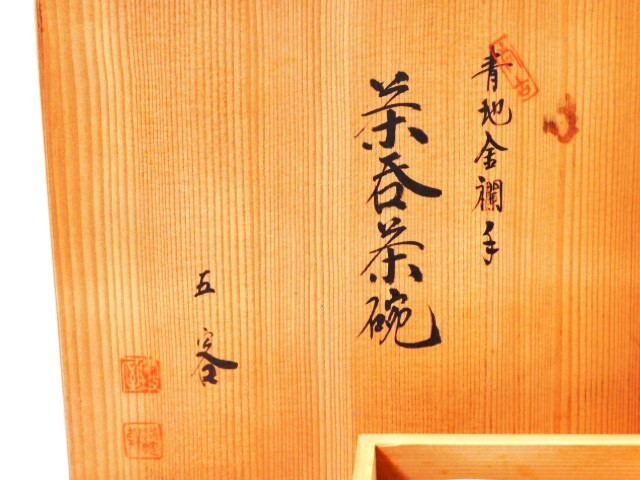 青地金襴手
茶呑茶碗
五客